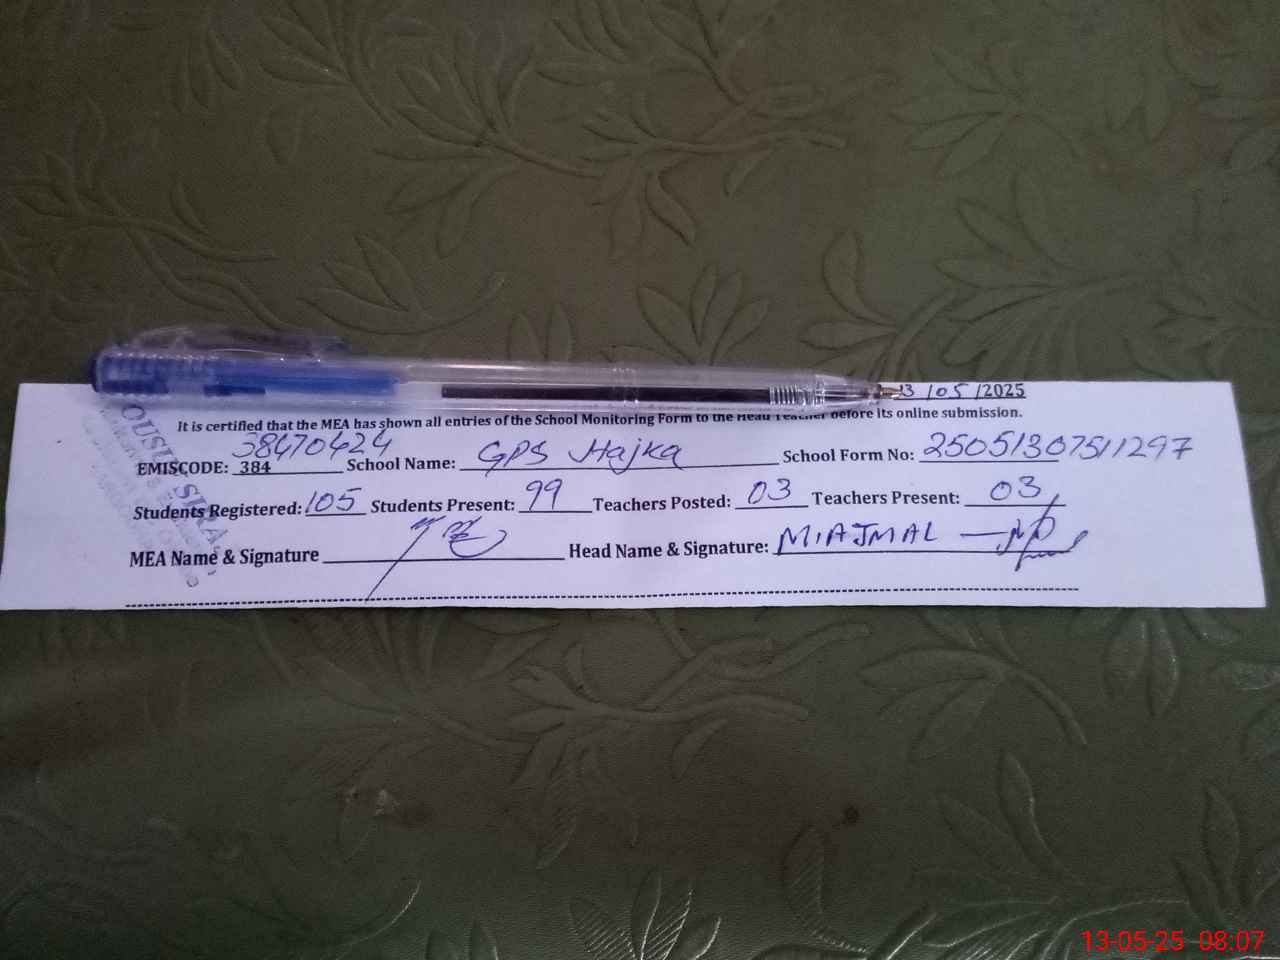 13/05/2025
It is certified that the MEA has shown all entries of the School Monitoring Form to the Head Teacher before its online submission.
EMISCODE: 384 38470424 School Name: GPS Hajka School Form No: 25051307511297
Students Registered: 105 Students Present: 99 Teachers Posted: 03 Teachers Present: 03
MEA Name & Signature Head Name & Signature: M.AJMAL
13-05-25 08:07